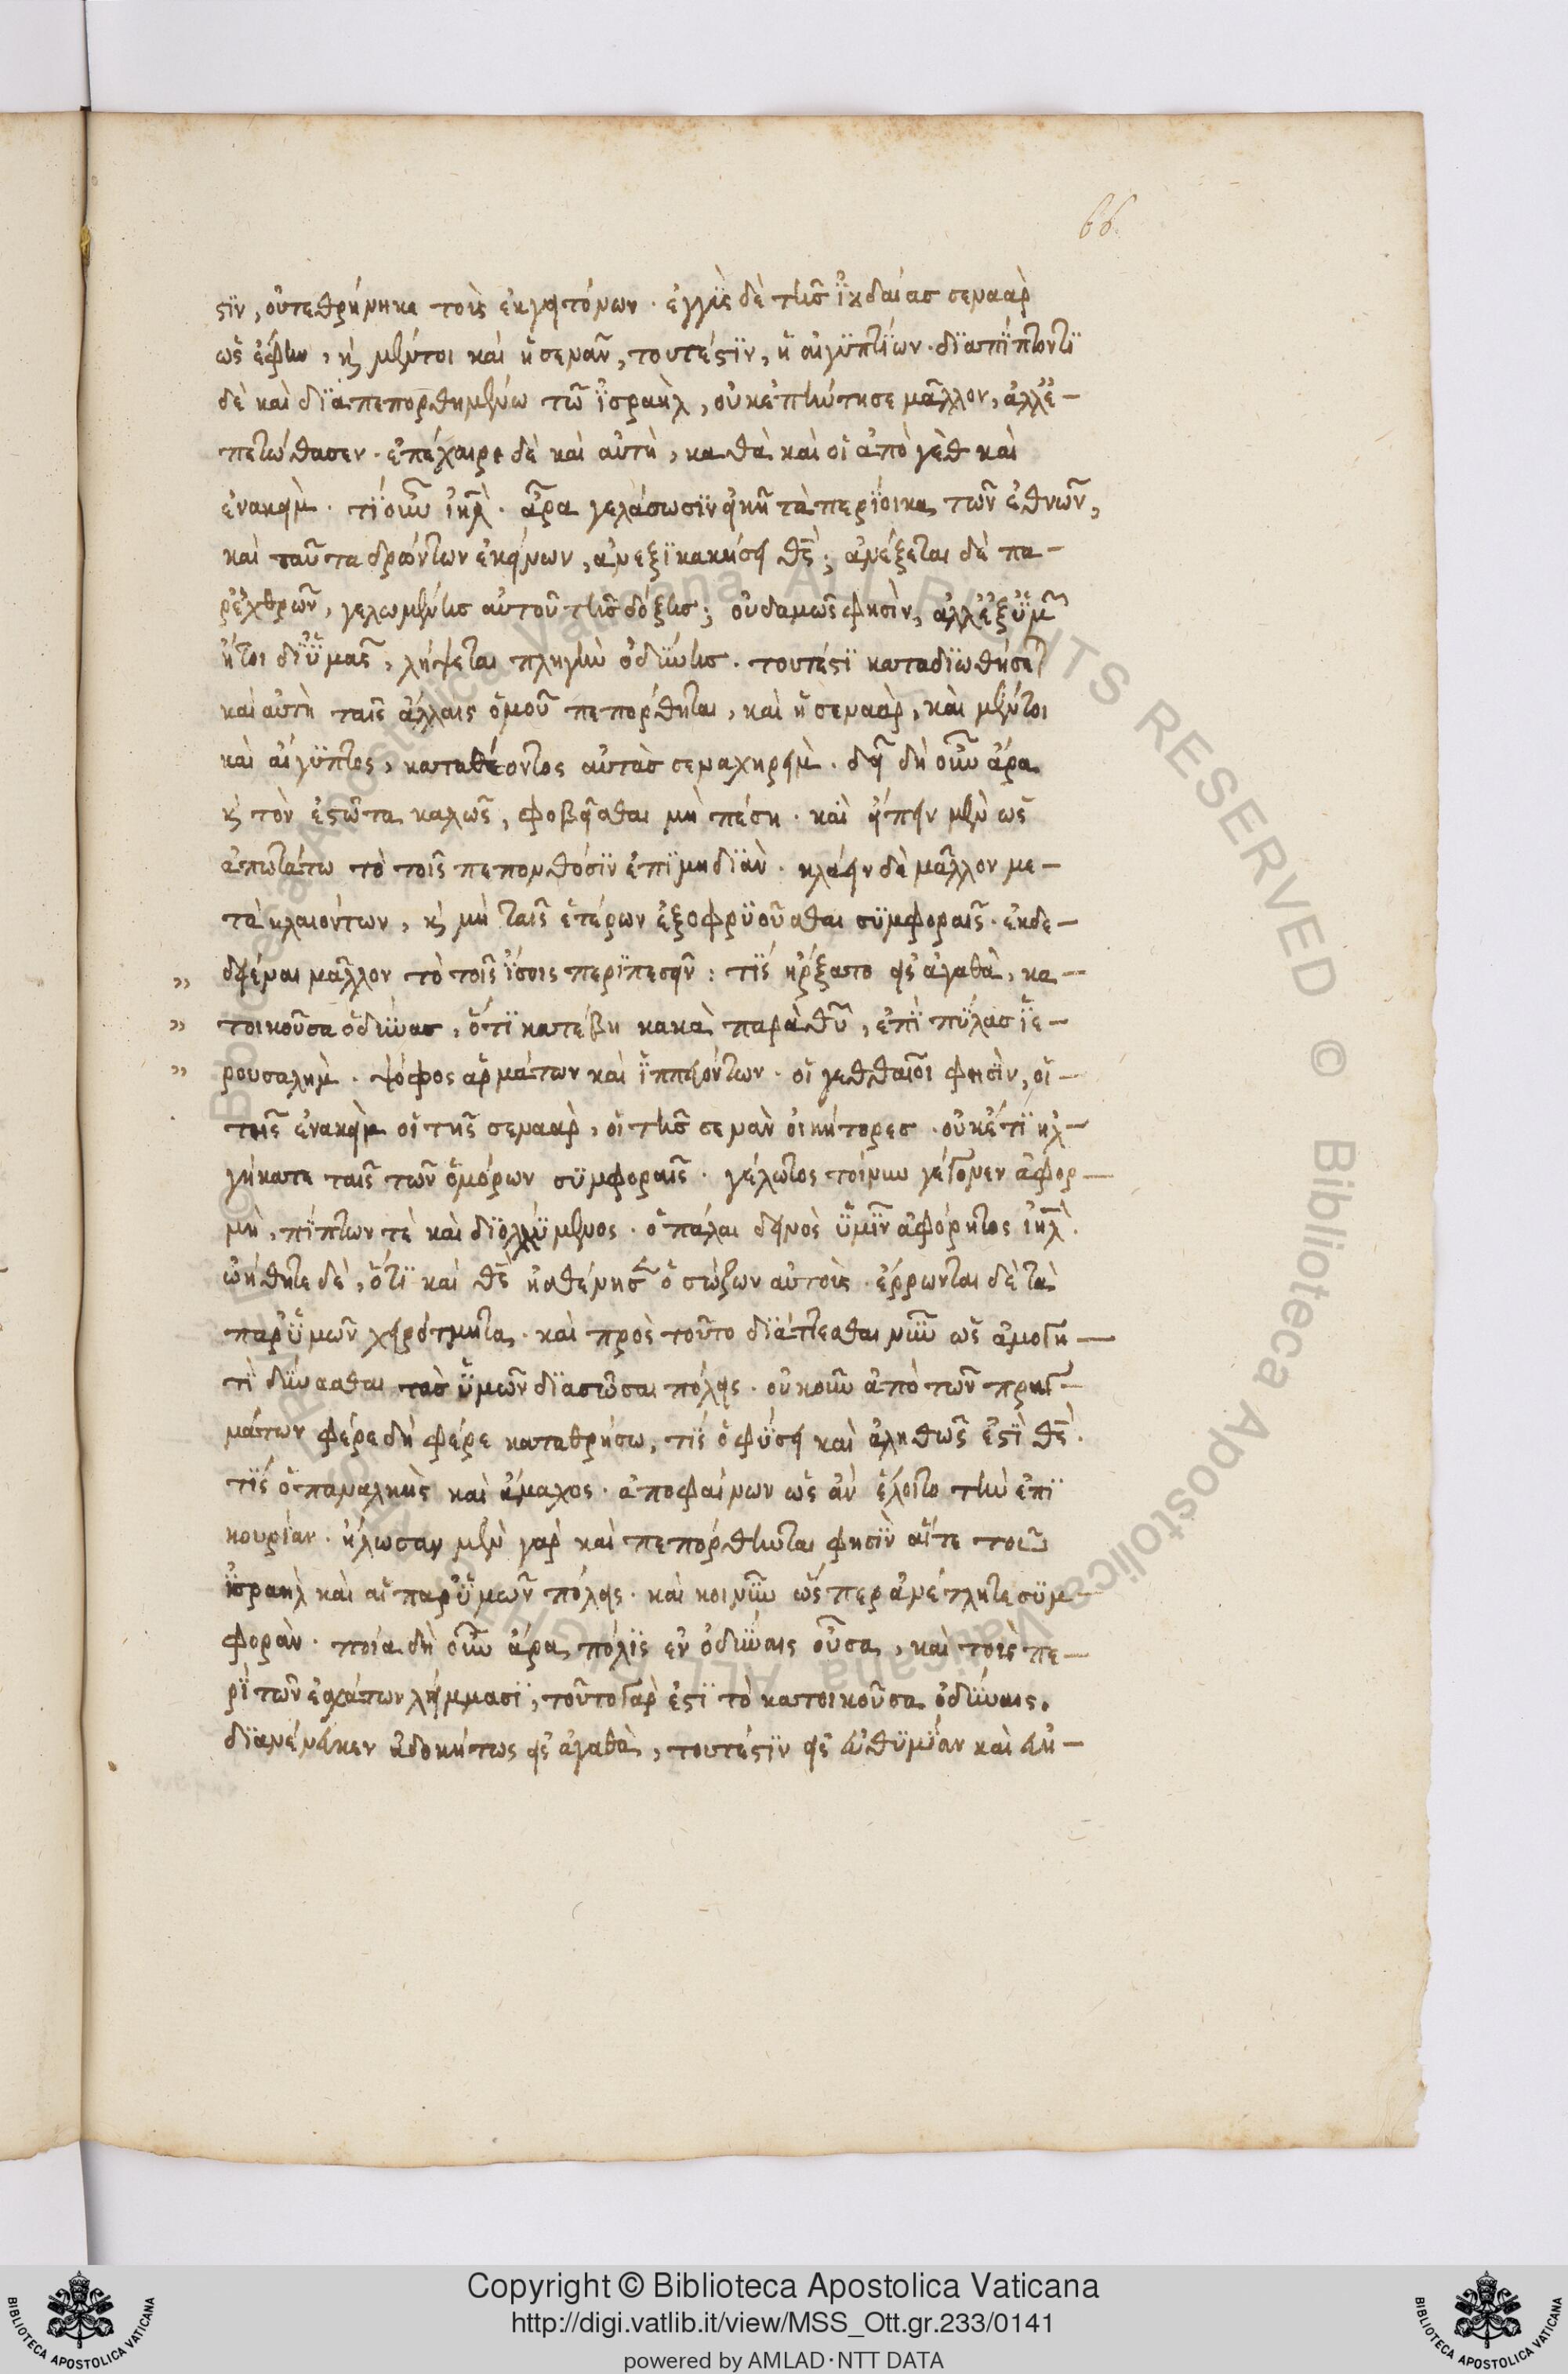 66.
σϊν, οὔτε θρήνηκε τοῖς ἐκγειτόνων. ἐγγὺς δὲ τῆς ἰουδαίας σεναὰρ
ὡς ἔφην, καὶ μέντοι καὶ ἡ σεναν, τουτέστιν, ἡ αἰγυπτίων. διαπίπτοντι
δὲ καὶ διαπεπορθημένω τῶ ἰσραὴλ, οὐκ ἐπένθησε μᾶλλον, ἀλλ' ἐ-
πετώθασεν. ἐπέχαιρε δὲ καὶ αὐτὴ, καθὰ καὶ οἱ ἀπὸ γὲθ καὶ
ἐνακεὶμ. τί οὖν ἰηλ. ἆρα γελάσωσιν εἰκῆ τὰ περίοικα τῶν ἐθνῶν,
καὶ ταῦτα δρώντων ἐκείνων, ἀνεξικακήσει θς; ἀνέξεται δὲ πα-
ρ' ἐχθρῶν, γελωμένης αὐτοῦ τῆς δόξης; οὐδαμῶς φησὶν, ἀλλ' ἐξ ὑμῶν
ἤτοι δι' ὑμᾶς, λήψεται πληγὴν ὀδύνης. τουτέστι καταδιωθήσεται
καὶ αὐτὴ ταῖς ἄλλαις ὁμοῦ πεπόρθηται, καὶ ἡ σεναὰρ, καὶ μέντοι
καὶ αἴγυπτος, καταθέοντος αὐτὰς σεναχηρεὶμ. δεῖ δὴ οὖν ἄρα
καὶ τὸν ἑστῶτα καλῶς, φοβεῖσθαι μὴ πέση. καὶ εἴπειν μὲν ὡς
ἀπωτάτω τὸ τοῖς πεπονθόσιν ἐπιμηδιᾶν. κλάειν δὲ μᾶλλον με-
τὰ κλαιόντων, καὶ μὴ ταῖς ἑτέρων ἐξοφρυοῦσθαι συμφοραῖς. ἐκδε-
δειέναι μᾶλλον τὸ τοῖς ἴσοις περιπεσεῖν: τίς ἤρξατο εἰς ἀγαθὰ, κα-
τοικοῦσα ὀδύνας, ὅτι κατέβη κακὰ παρὰ θυ, ἐπὶ πύλας ἱε-
ρουσαλημ. ψόφος ἁρμάτων καὶ ἱππευόντων. οἱ γεθθαῖοι φησὶν, οἱ
τοῖς ἐνακεὶμ οἱ τῆς σεναὰρ, οἱ τῆς σεναν οἰκήτορες. οὐκέτι ἠλ-
γήκατε ταῖς τῶν ὁμόρων συμφοραῖς. γέλωτος τοίνυν γέγονεν ἀφορ-
μὴ, πίπτων τὲ καὶ διολλύμενος. ὁ πάλαι δεινὸς ὑμῖν ἀφόρητος ἰηλ.
ὠήθητε δὲ, ὅτι καὶ θς ἠσθένησεν ὁ σώζων αὐτοὺς. ἔρρωνται δὲ τὰ
παρ' ὑμῶν χειρότμητα. καὶ πρὸς τοῦτο διάττεσθαι νῦν ὡς ἀμογη-
τὶ δύνασθαι τὰς ὑμῶν διασῶσαι πόλεις. οὐκοῦν ἀπὸ τῶν πραγ-
μάτων φέρε δὴ φέρε καταθρήσω, τίς ὁ φύσει καὶ ἀληθῶς ἐστὶ θς.
τίς ὁ παναλκὴς καὶ ἄμαχος. ἀποφαίνων ὡς ἀν ἕλοιτο τὴν ἐπι
κουρίαν. ἥλωσαν μὲν γὰρ καὶ πεπόρθηνται φησὶν αἵτε τοῦ
ἰσραὴλ καὶ αἱ παρ' ὑμῶν πόλεις. καὶ κοινὴν ὥσπερ ἀνέτλητε συμ-
φοράν. ποία δὴ οὖν ἄρα πόλις ἐν ὀδύναις οὖσα, καὶ τοῖς πε-
ρὶ τῶν ἐσχάτων λήμμασι, τοῦτο γάρ ἐστι τὸ κατοικοῦσα ὀδύναις.
διανένευκεν ἀδοκήτως εἰς ἀγαθὰ, τουτέστιν εἰς εὐθυμίαν καὶ εὐη-
Copyright © Biblioteca Apostolica Vaticana
http://digi.vatlib.it/view/MSS_Ott.gr.233/0141
powered by AMLAD·NTT DATA